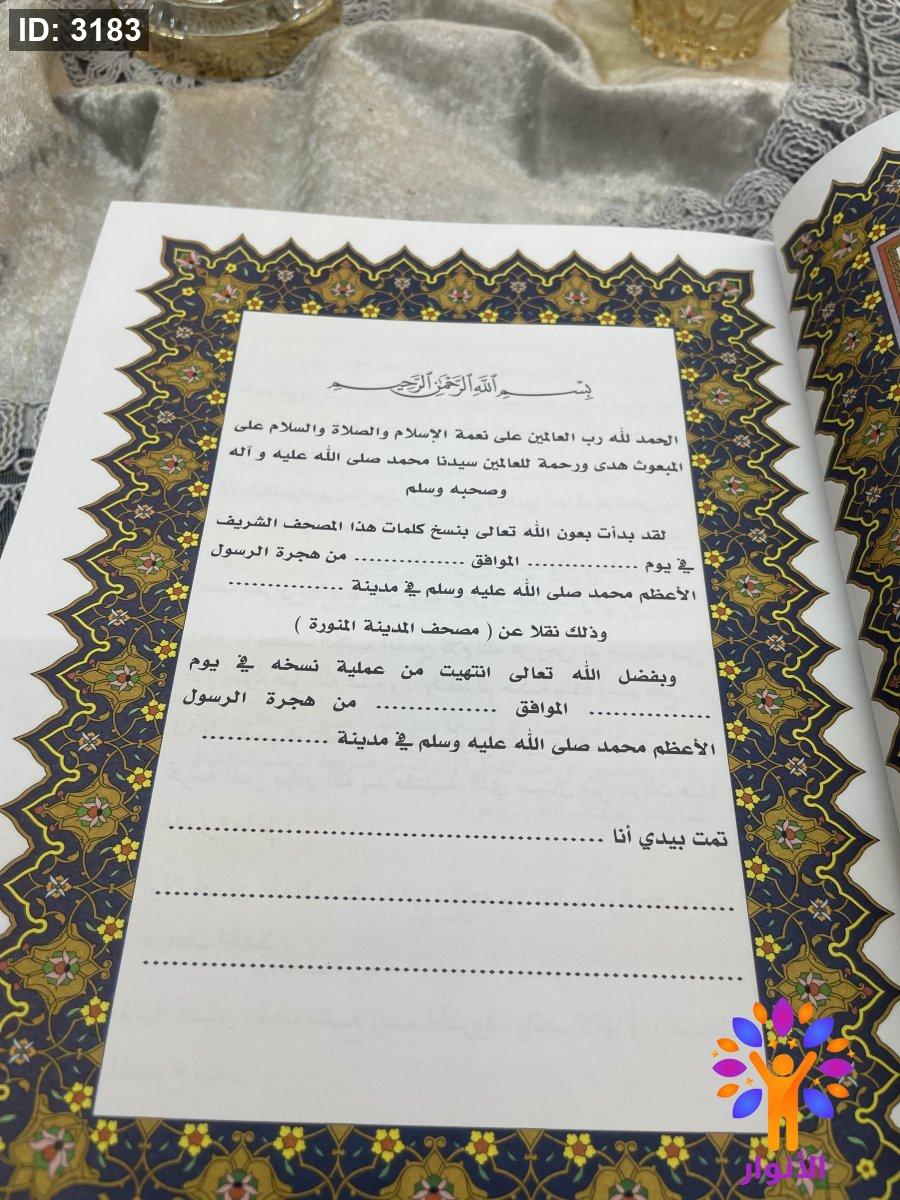 ID: 3183
بسم الله الرحمن الرحيم
الحمد لله رب العالمين على نعمة الإسلام والصلاة والسلام على
المبعوث هدى ورحمة للعالمين سيدنا محمد صلى الله عليه و آله
وصحبه وسلم
لقد بدأت بعون الله تعالى بنسخ كلمات هذا المصحف الشريف
في يوم ................ الموافق ................ من هجرة الرسول
الأعظم محمد صلى الله عليه وسلم في مدينة ................
وذلك نقلا عن ( مصحف المدينة المنورة )
وبفضل الله تعالى انتهيت من عملية نسخه في يوم
................ الموافق ................ من هجرة الرسول
الأعظم محمد صلى الله عليه وسلم في مدينة ................
تمت بيدي أنا ................................................
................................................................
................................................................
الأنوار